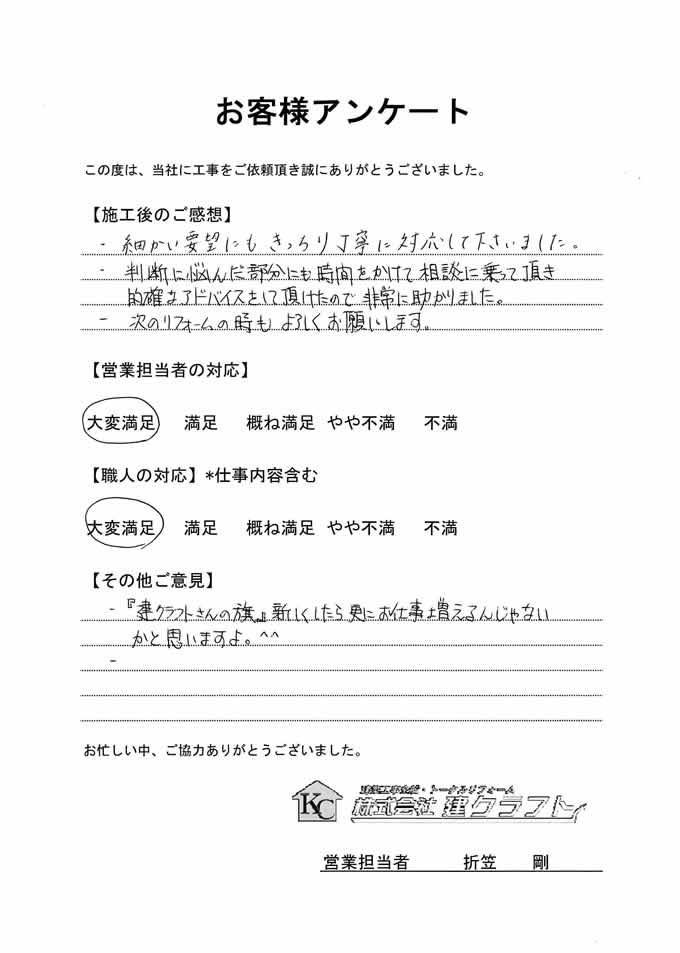 お客様アンケート
この度は、当社に工事をご依頼頂き誠にありがとうございました。
【施工後のご感想】
- 細かい要望にもきっちり丁寧に対応して下さいました。
- 判断に悩んだ部分にも時間をかけて相談に乗って頂き
的確なアドバイスをして頂けたので非常に助かりました。
- 次のリフォームの時もよろしくお願いします。
【営業担当者の対応】
大変満足 満足 概ね満足 やや不満 不満
【職人の対応】*仕事内容含む
大変満足 満足 概ね満足 やや不満 不満
【その他ご意見】
- 『建クラフトさんの旗』新しくしたら更にお仕事増えるんじゃない
かと思いますよ。^^
-
お忙しい中、ご協力ありがとうございました。
・トータルリフォーム
KC 株式会社 建クラフト
営業担当者 折笠 剛